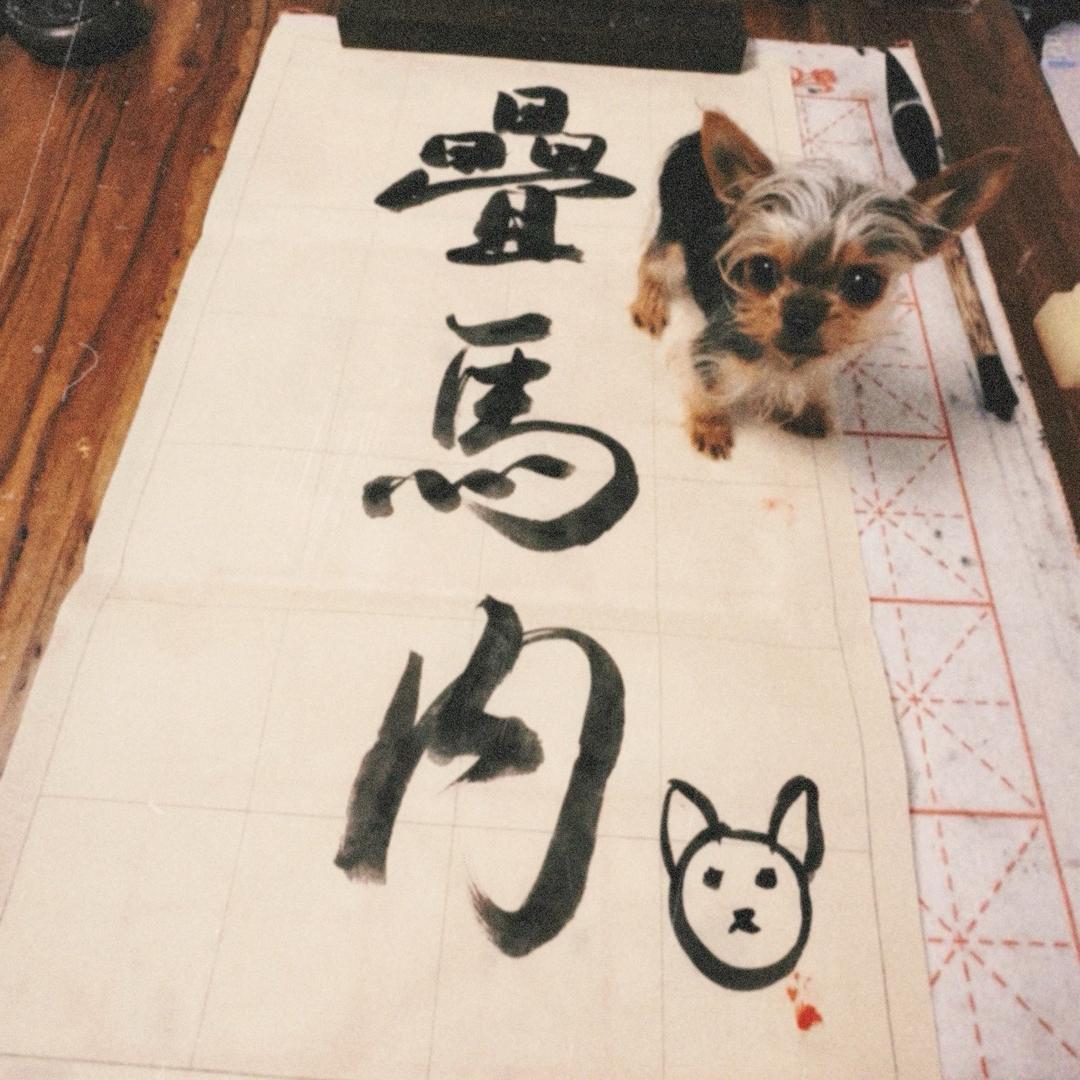 疊馬內